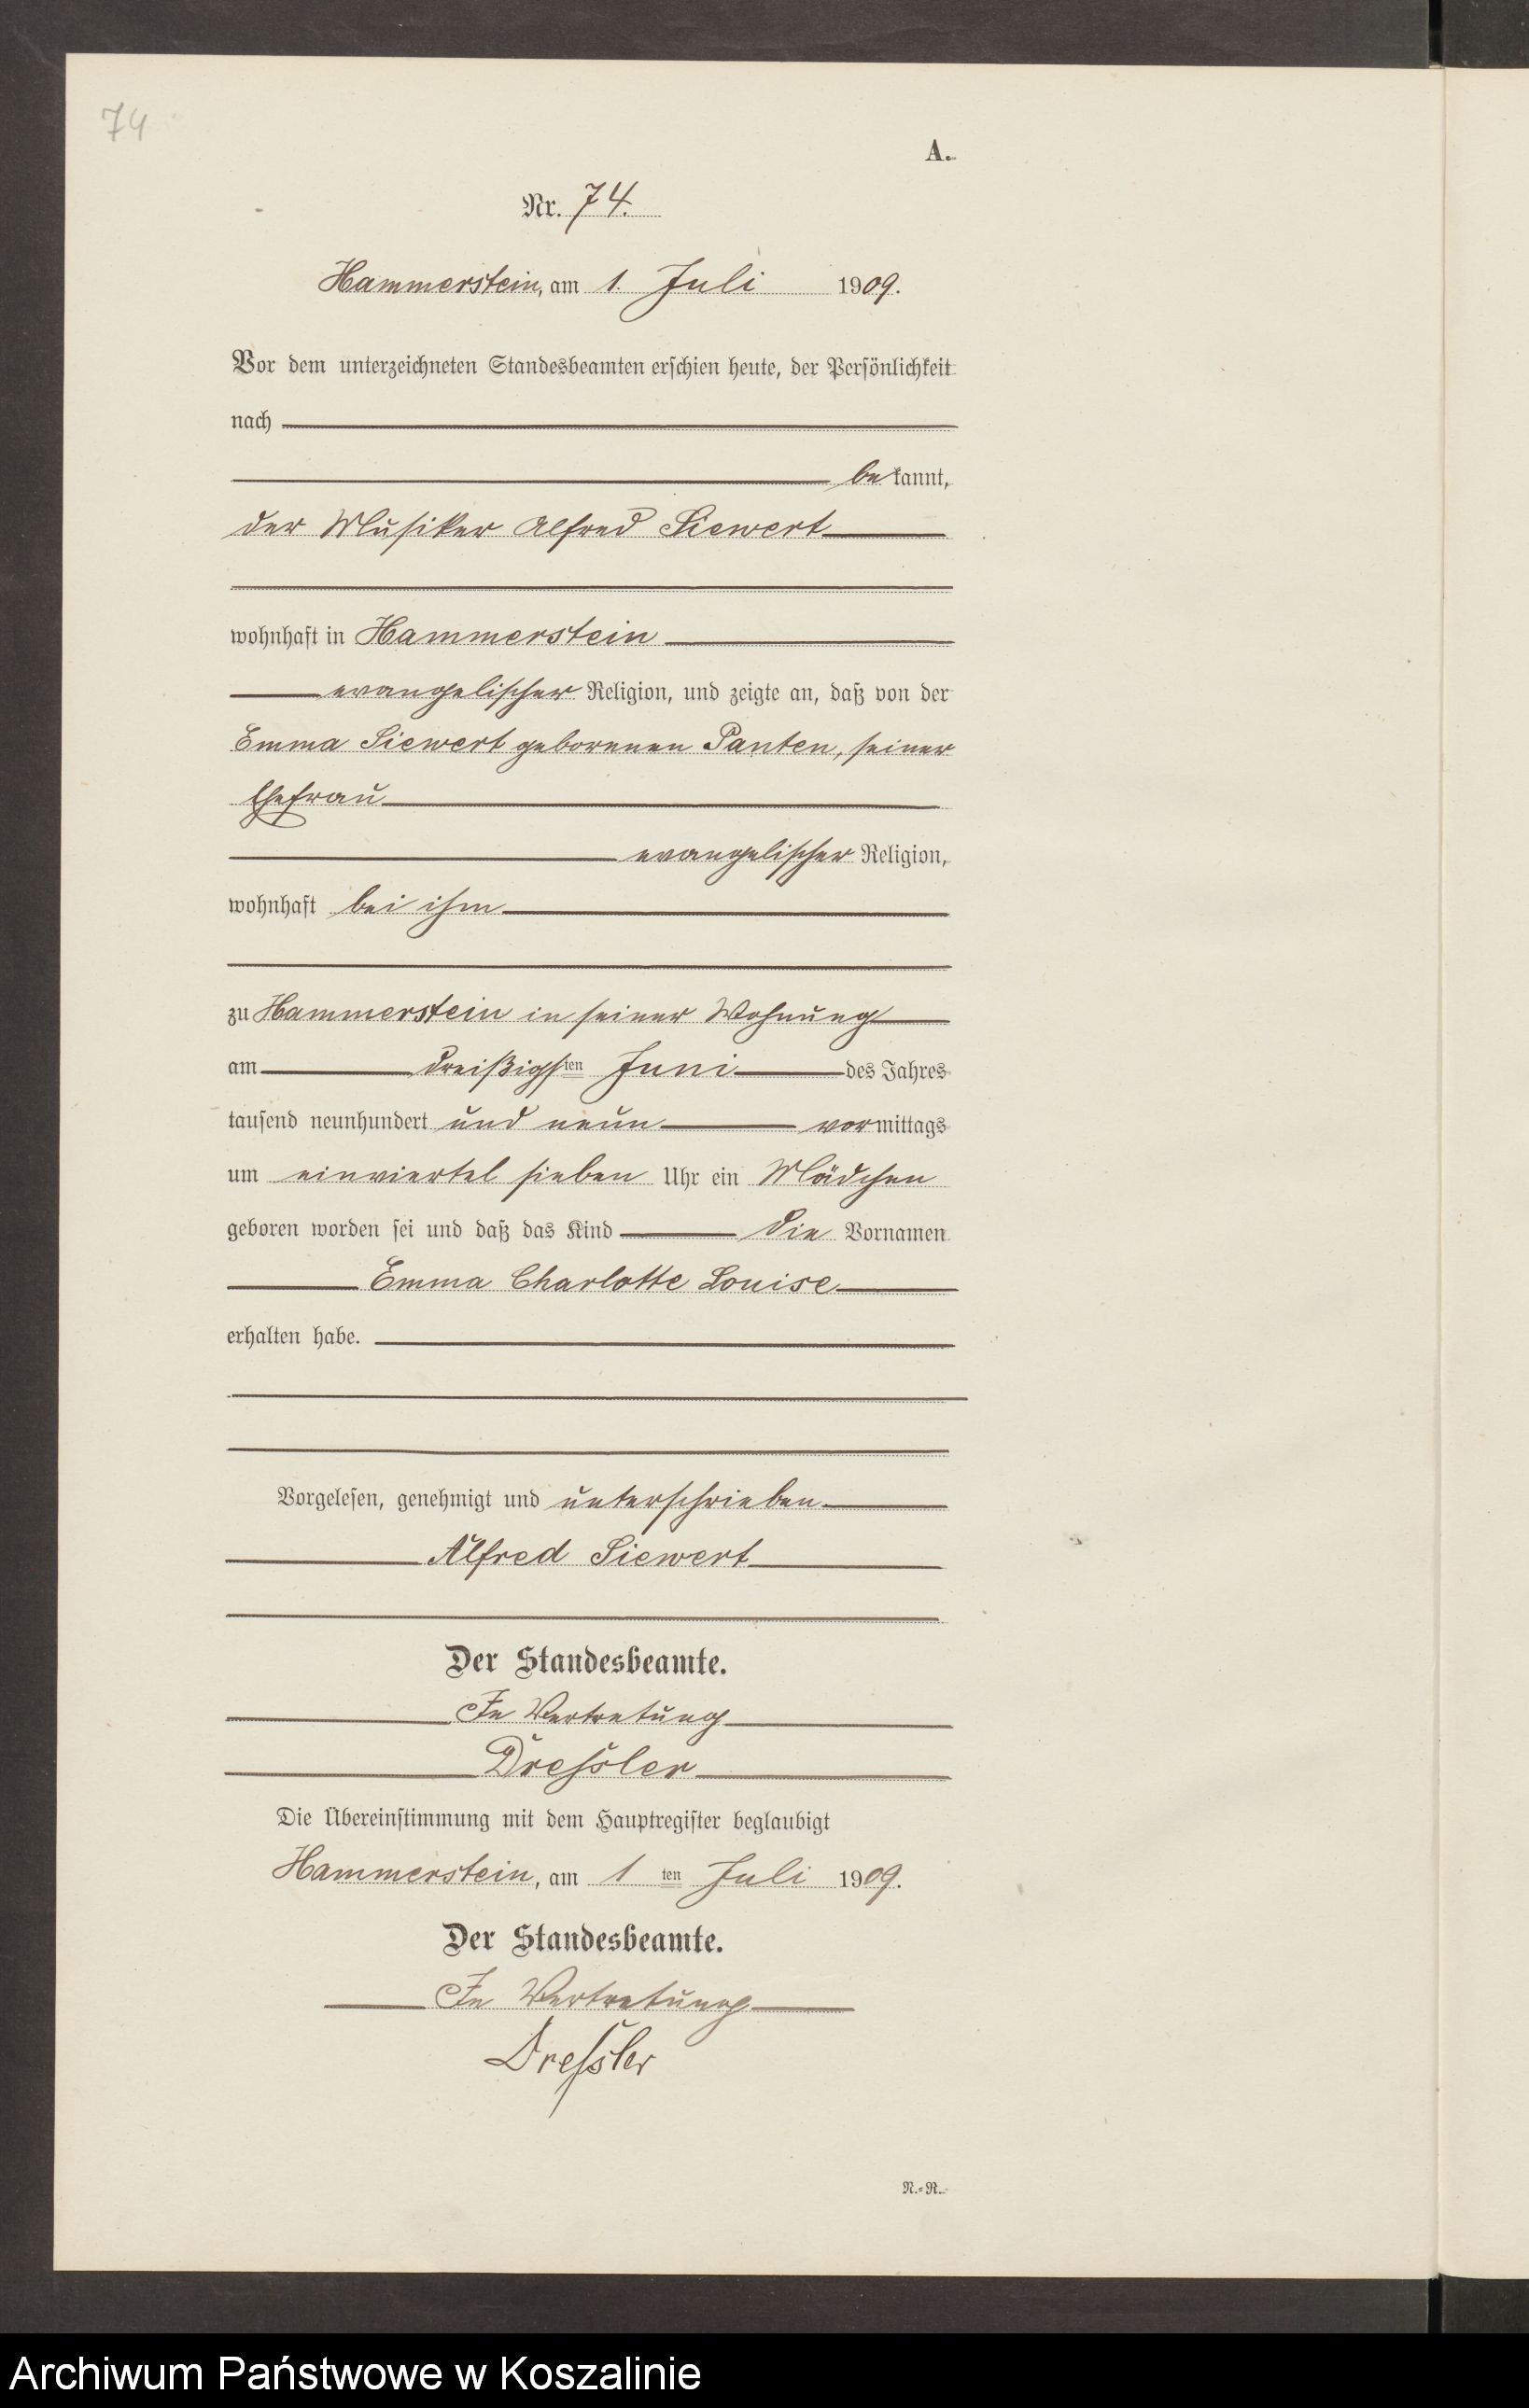 74
A.
Nr. 74.
Hammerstein, am 1. Juli 1909.
Vor dem unterzeichneten Standesbeamten erschien heute, der Persönlichkeit
nach
bekannt,
der Musiker Alfred Siewert
wohnhaft in Hammerstein
evangelischer Religion, und zeigte an, daß von der
Emma Siewert geborenen Panten, seiner
Ehefrau
evangelischer Religion,
wohnhaft bei ihm
zu Hammerstein in seiner Wohnung
am dreißigsten Juni des Jahres
tausend neunhundert und neun vormittags
um einviertel sieben Uhr ein Mädchen
geboren worden sei und daß das Kind die Vornamen
Emma Charlotte Louise
erhalten habe.
Vorgelesen, genehmigt und unterschrieben
Alfred Siewert
Der Standesbeamte.
In Vertretung
Dressler
Die Übereinstimmung mit dem Hauptregister beglaubigt
Hammerstein, am 1ten Juli 1909.
Der Standesbeamte.
In Vertretung
Dressler
N.-R.
Archiwum Państwowe w Koszalinie